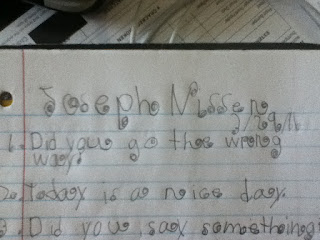 Joseph Nissen
1. Did you go the wrong
way?
2. Today is a nice day.
3. Did you say something